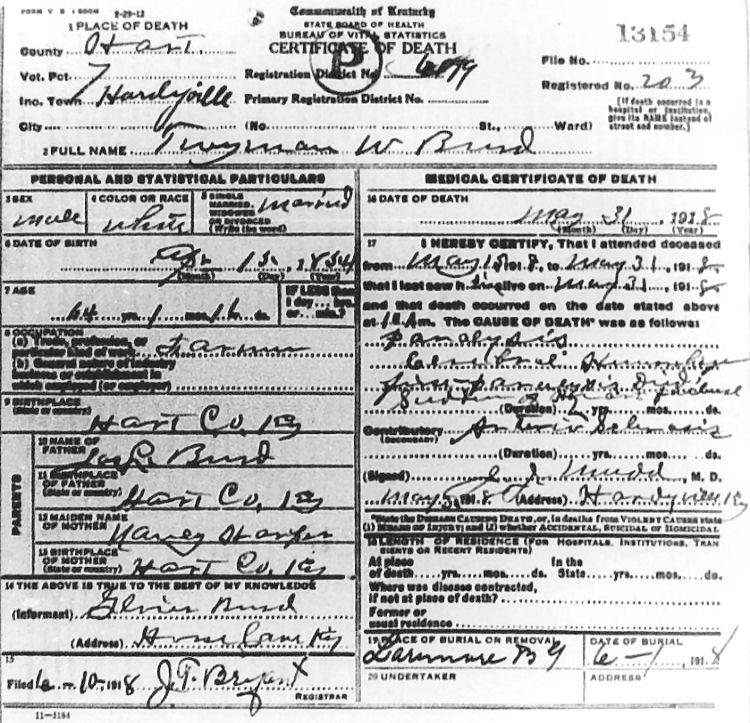 FORM V. S. 1 500M 2-29-12
Commonwealth of Kentucky
STATE BOARD OF HEALTH
BUREAU OF VITAL STATISTICS
CERTIFICATE OF DEATH
1 PLACE OF DEATH
County Hart.
Vot. Pct 7
Inc. Town Hardyville
City
Registration District No.
P
Primary Registration District No.
(No. St., Ward)
13154
File No.
Registered No. 203
[If death occurred in a hospital or institution, give its NAME instead of street and number.]
2 FULL NAME Twyman W Burd
PERSONAL AND STATISTICAL PARTICULARS
3 SEX
male
4 COLOR OR RACE
white
5 SINGLE, MARRIED, WIDOWED OR DIVORCED (Write the word)
married
6 DATE OF BIRTH
Apr 15, 1854
(Month) (Day) (Year)
7 AGE
64 yrs. 1 mos. 16 ds.
IF LESS than 1 day hrs. or min.?
8 OCCUPATION
(a) Trade, profession, or particular kind of work Farmer
(b) General nature of industry business or establishment in which employed (or employer)
9 BIRTHPLACE (State or country)
Hart Co, Ky
PARENTS
10 NAME OF FATHER
Burd
11 BIRTHPLACE OF FATHER (State or country)
Hart Co, Ky
12 MAIDEN NAME OF MOTHER
Nancy
13 BIRTHPLACE OF MOTHER (State or country)
Hart Co, Ky
14 THE ABOVE IS TRUE TO THE BEST OF MY KNOWLEDGE
(Informant) Burd
(Address) Horse Cave Ky
15
Filed 6-10-1918 J. T. Bryant
REGISTRAR
11-1184
MEDICAL CERTIFICATE OF DEATH
16 DATE OF DEATH
May 31, 1918
(Month) (Day) (Year)
17 I HEREBY CERTIFY, That I attended deceased
from May 1918, to May 31, 1918,
that I last saw him alive on May 31, 1918
and that death occurred on the date stated above
at m. The CAUSE OF DEATH* was as follows:
paralysis
Cerebral
from paralysis Died
(Duration) 2 yrs. mos. ds.
Contributory (SECONDARY) Arterio Sclerosis
(Duration) yrs. mos. ds.
(Signed) Mudd, M. D.
May 1918 (Address) Hardyville Ky
*State the DISEASE CAUSING DEATH, or, in deaths from VIOLENT CAUSES state (1) MEANS OF INJURY; and (2) whether ACCIDENTAL, SUICIDAL or HOMICIDAL
18 LENGTH OF RESIDENCE (FOR HOSPITALS, INSTITUTIONS, TRANSIENTS OR RECENT RESIDENTS)
At place of death yrs. mos. ds. In the State yrs. mos. ds.
Where was disease contracted, if not at place of death?
Former or usual residence
19 PLACE OF BURIAL OR REMOVAL
Larimore B G
DATE OF BURIAL
6-1, 1918
20 UNDERTAKER
ADDRESS